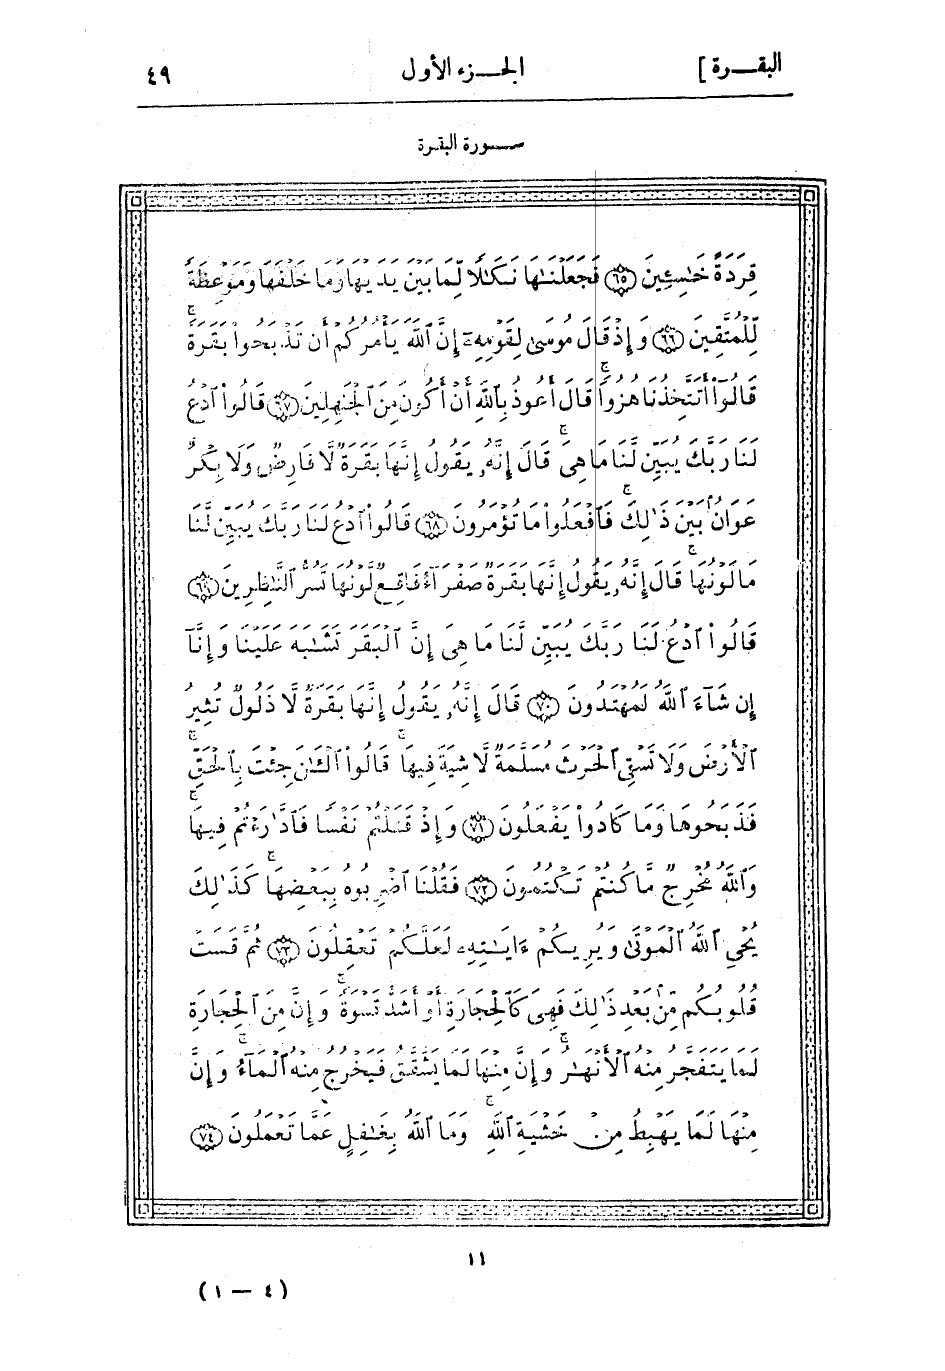 البقـــرة ]
الجـــزء الأول
٤٩
ســـورة البقرة
قِرَدَةً خَٰسِـِٔينَ ٦٥ فَجَعَلْنَٰهَا نَكَٰلًا لِّمَا بَيْنَ يَدَيْهَا وَمَا خَلْفَهَا وَمَوْعِظَةً
لِّلْمُتَّقِينَ ٦٦ وَإِذْ قَالَ مُوسَىٰ لِقَوْمِهِۦٓ إِنَّ ٱللَّهَ يَأْمُرُكُمْ أَن تَذْبَحُوا۟ بَقَرَةً ۖ
قَالُوٓا۟ أَتَتَّخِذُنَا هُزُوًا ۖ قَالَ أَعُوذُ بِٱللَّهِ أَنْ أَكُونَ مِنَ ٱلْجَٰهِلِينَ ٦٧ قَالُوا۟ ٱدْعُ
لَنَا رَبَّكَ يُبَيِّن لَّنَا مَا هِىَ ۚ قَالَ إِنَّهُۥ يَقُولُ إِنَّهَا بَقَرَةٌ لَّا فَارِضٌ وَلَا بِكْرٌ
عَوَانٌۢ بَيْنَ ذَٰلِكَ ۖ فَٱفْعَلُوا۟ مَا تُؤْمَرُونَ ٦٨ قَالُوا۟ ٱدْعُ لَنَا رَبَّكَ يُبَيِّن لَّنَا
مَا لَوْنُهَا ۚ قَالَ إِنَّهُۥ يَقُولُ إِنَّهَا بَقَرَةٌ صَفْرَآءُ فَاقِعٌ لَّوْنُهَا تَسُرُّ ٱلنَّٰظِرِينَ ٦٩
قَالُوا۟ ٱدْعُ لَنَا رَبَّكَ يُبَيِّن لَّنَا مَا هِىَ إِنَّ ٱلْبَقَرَ تَشَٰبَهَ عَلَيْنَا وَإِنَّآ
إِن شَآءَ ٱللَّهُ لَمُهْتَدُونَ ٧٠ قَالَ إِنَّهُۥ يَقُولُ إِنَّهَا بَقَرَةٌ لَّا ذَلُولٌ تُثِيرُ
ٱلْأَرْضَ وَلَا تَسْقِى ٱلْحَرْثَ مُسَلَّمَةٌ لَّا شِيَةَ فِيهَا ۚ قَالُوا۟ ٱلْـَٰٔنَ جِئْتَ بِٱلْحَقِّ ۚ
فَذَبَحُوهَا وَمَا كَادُوا۟ يَفْعَلُونَ ٧١ وَإِذْ قَتَلْتُمْ نَفْسًا فَٱدَّٰرَٰٔتُمْ فِيهَا ۖ
وَٱللَّهُ مُخْرِجٌ مَّا كُنتُمْ تَكْتُمُونَ ٧٢ فَقُلْنَا ٱضْرِبُوهُ بِبَعْضِهَا ۚ كَذَٰلِكَ
يُحْىِ ٱللَّهُ ٱلْمَوْتَىٰ وَيُرِيكُمْ ءَايَٰتِهِۦ لَعَلَّكُمْ تَعْقِلُونَ ٧٣ ثُمَّ قَسَتْ
قُلُوبُكُم مِّنۢ بَعْدِ ذَٰلِكَ فَهِىَ كَٱلْحِجَارَةِ أَوْ أَشَدُّ قَسْوَةً ۚ وَإِنَّ مِنَ ٱلْحِجَارَةِ
لَمَا يَتَفَجَّرُ مِنْهُ ٱلْأَنْهَٰرُ ۚ وَإِنَّ مِنْهَا لَمَا يَشَّقَّقُ فَيَخْرُجُ مِنْهُ ٱلْمَآءُ ۚ وَإِنَّ
مِنْهَا لَمَا يَهْبِطُ مِنْ خَشْيَةِ ٱللَّهِ ۗ وَمَا ٱللَّهُ بِغَٰفِلٍ عَمَّا تَعْمَلُونَ ٧٤
١١
(٤ — ١)